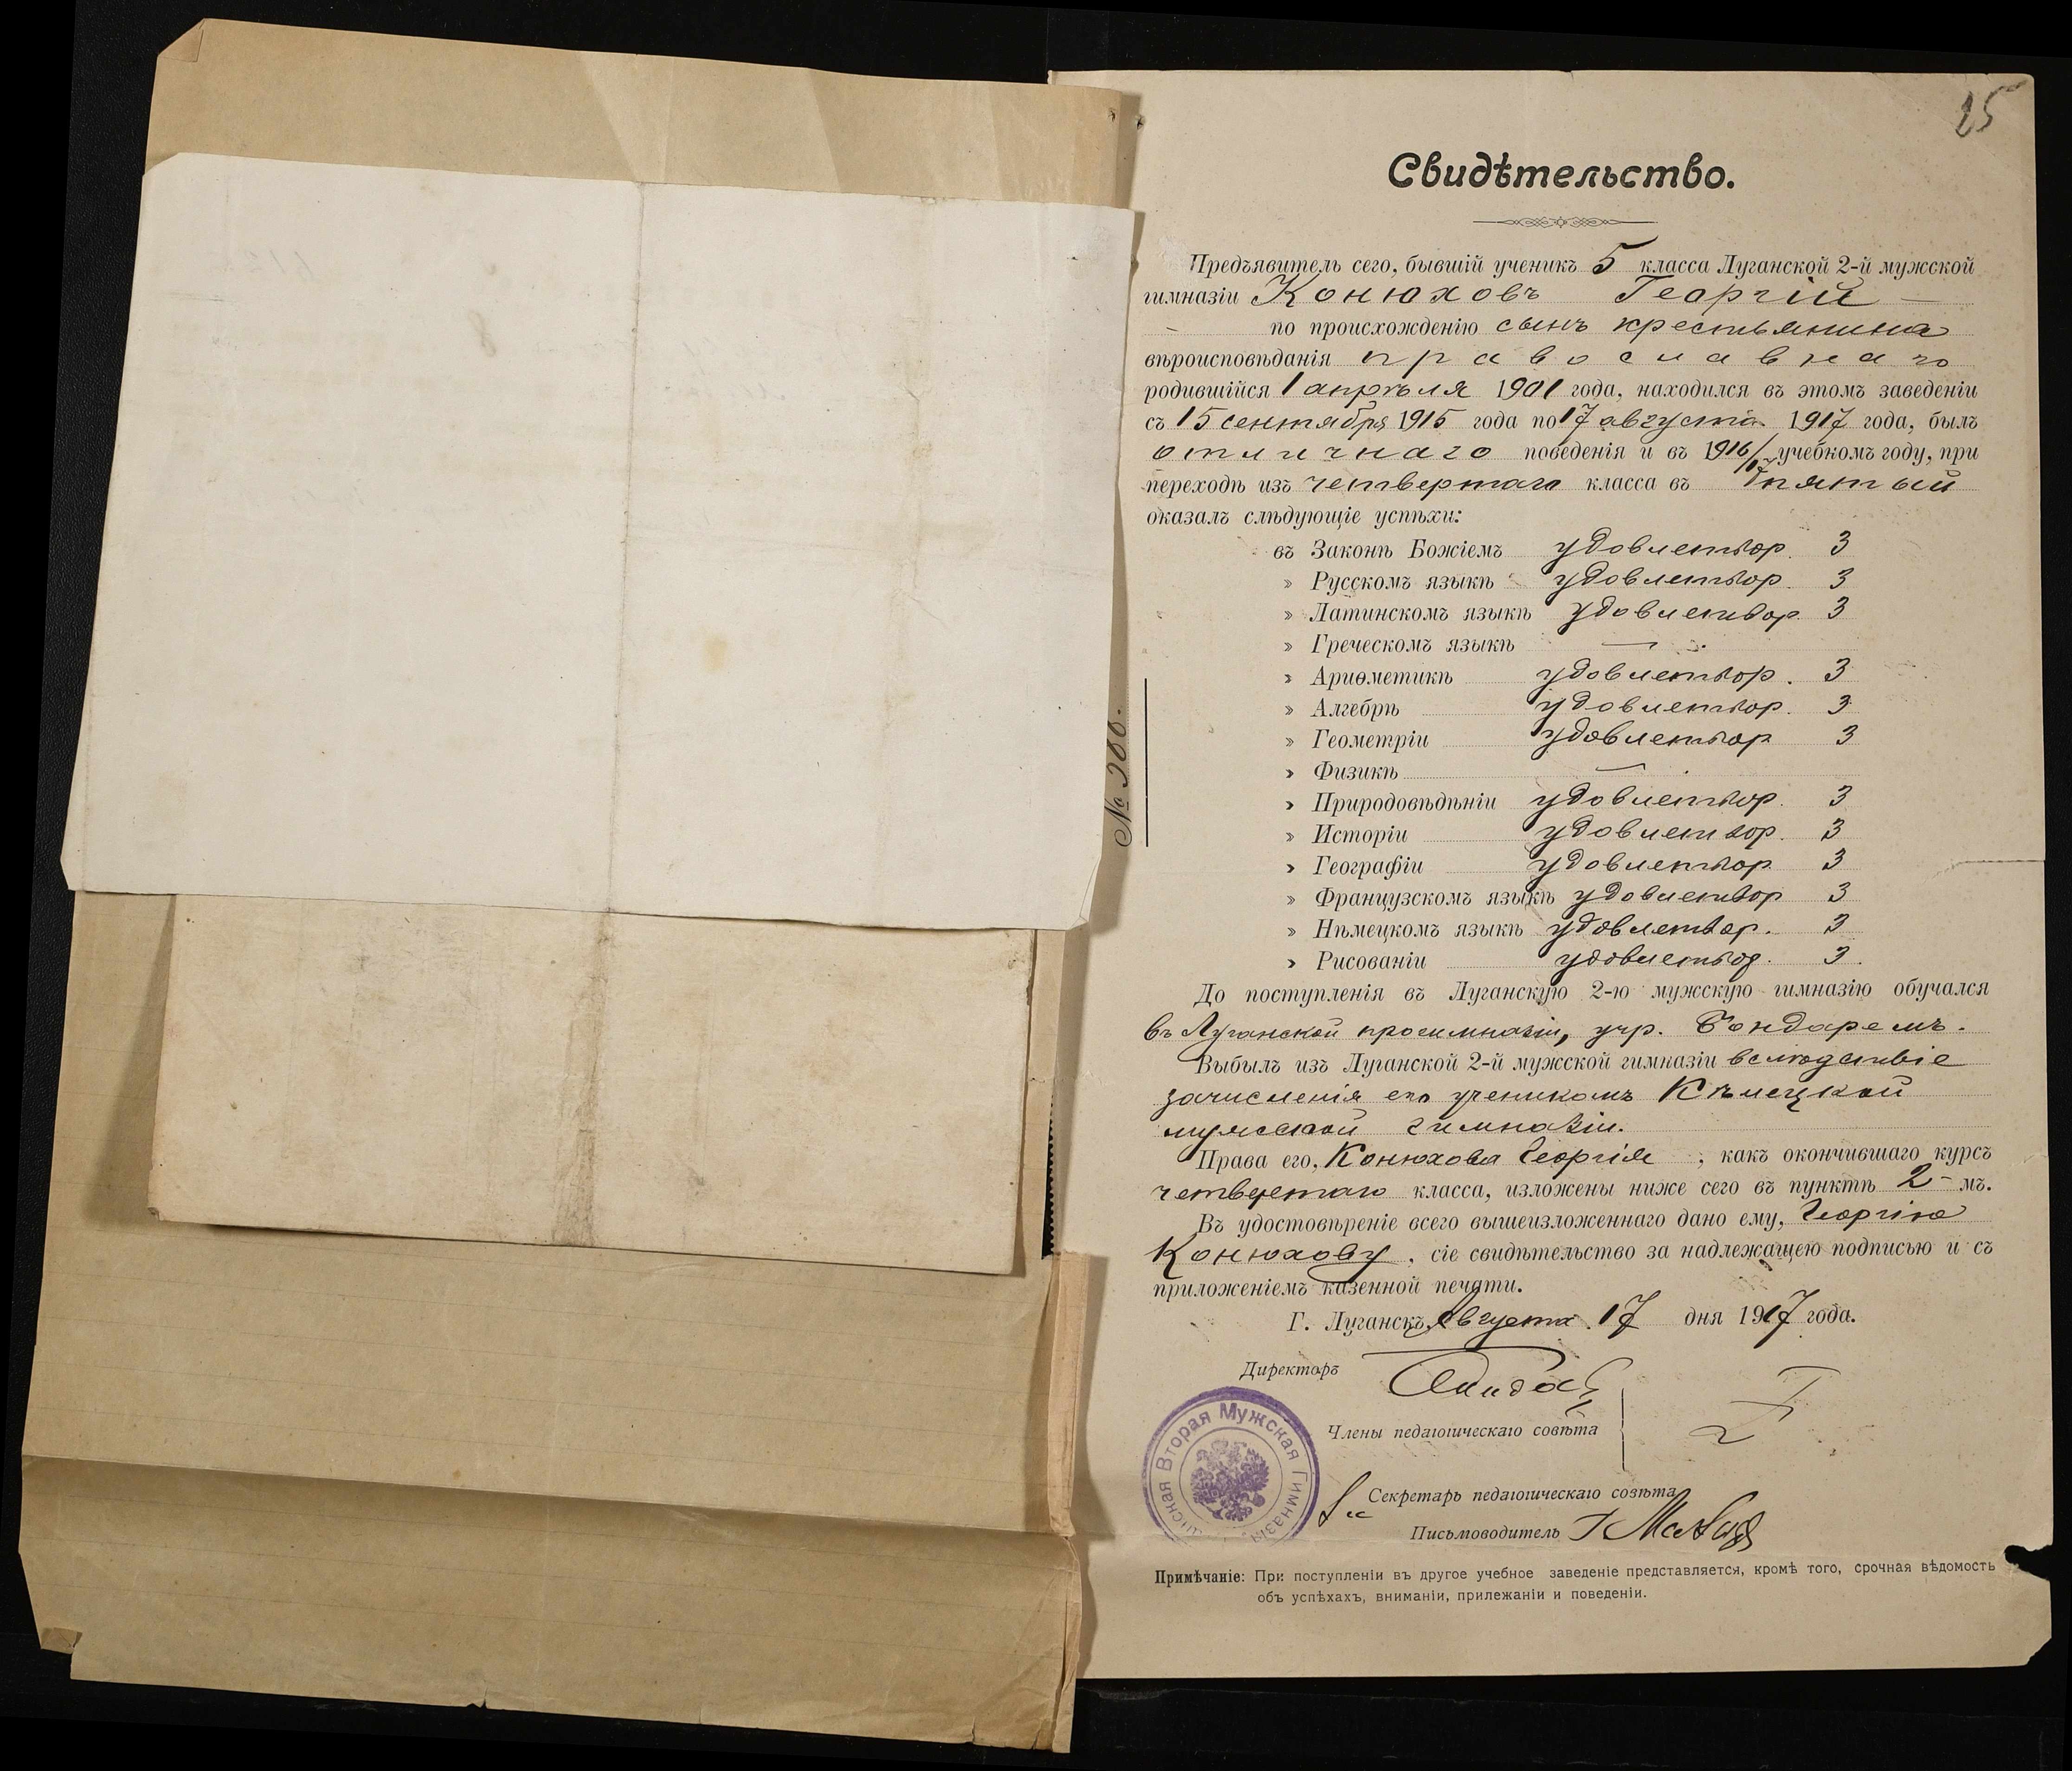 25
Свидѣтельство.
Предъявитель сего, бывшій ученикъ 5 класса Луганской 2-й мужской
гимназіи Конюховъ Георгій —
- по происхожденію сынъ крестьянина
вѣроисповѣданія православнаго
родившійся 1 апрѣля 1901 года, находился въ этомъ заведеніи
съ 15 сентября 1915 года по 17 августа 1917 года, былъ
отличнаго поведенія и въ 1916/17 учебномъ году, при
переходѣ изъ четвертаго класса въ пятый
оказалъ слѣдующіе успѣхи:
въ Законѣ Божіемъ удовлетвор. 3
» Русскомъ языкѣ удовлетвор. 3
» Латинскомъ языкѣ удовлетвор. 3
» Греческомъ языкѣ —
» Ариѳметикѣ удовлетвор. 3
» Алгебрѣ удовлетвор. 3
» Геометріи удовлетвор 3
» Физикѣ —
» Природовѣдѣніи удовлетвор. 3
» Исторіи удовлетвор. 3
» Географіи удовлетвор 3
» Французскомъ языкѣ удовлетвор 3
» Нѣмецкомъ языкѣ удовлетвор. 3
» Рисованіи удовлетвор. 3.
До поступленія въ Луганскую 2-ю мужскую гимназію обучался
въ Луганской прогимназіи, учр. Бондаремъ.
Выбылъ изъ Луганской 2-й мужской гимназіи вслѣдствіе
зачисленія его ученикомъ Кѣлецкой
мужской гимназіи.
Права его, Конюхова Георгія, какъ окончившаго курсъ
четвертаго класса, изложены ниже сего въ пунктѣ 2-мъ.
Въ удостовѣреніе всего вышеизложеннаго дано ему, Георгію
Конюхову, сіе свидѣтельство за надлежащею подписью и съ
приложеніемъ казенной печати.
Г. Луганскъ, Августа 17 дня 1917 года.
Директоръ
Члены педагогическаго совѣта
Секретарь педагогическаго совѣта
Письмоводитель
Вторая Мужская Гимназія
Примѣчаніе: При поступленіи въ другое учебное заведеніе представляется, кромѣ того, срочная вѣдомость
объ успѣхахъ, вниманіи, прилежаніи и поведеніи.